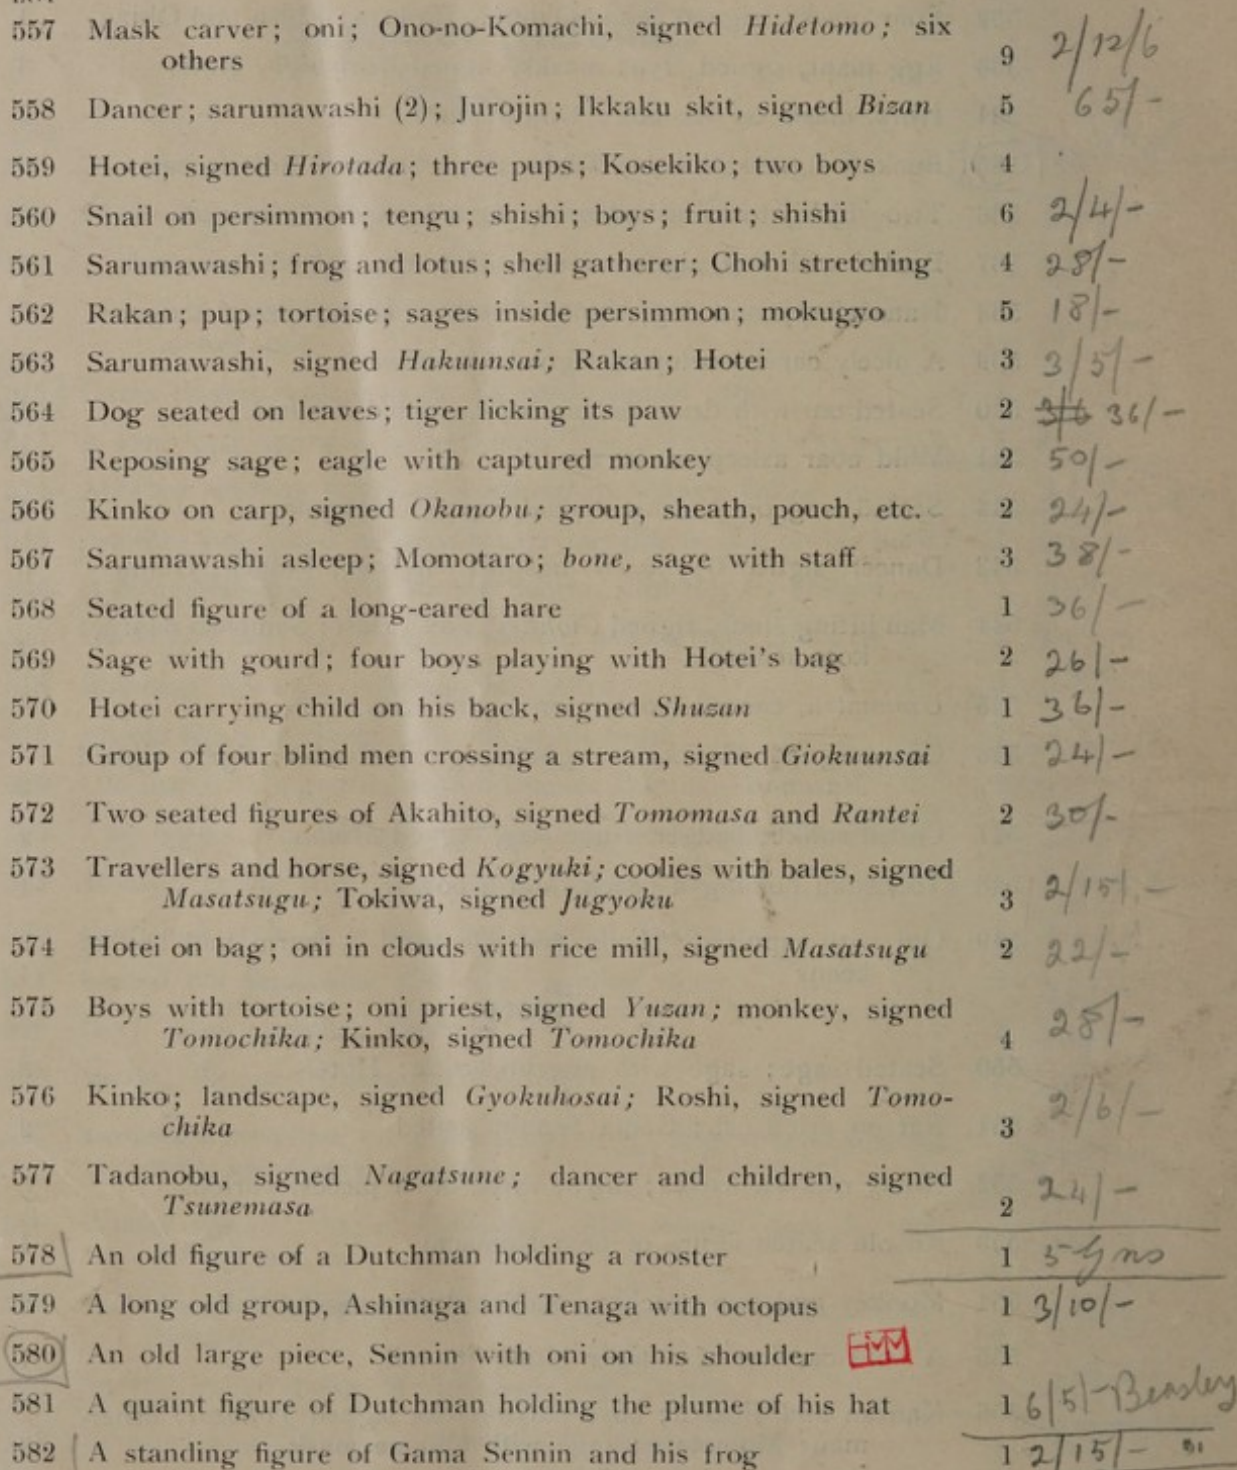 557 Mask carver; oni; Ono-no-Komachi, signed Hidetomo; six
others 9 2/12/6
558 Dancer; sarumawashi (2); Jurojin; Ikkaku skit, signed Bizan 5 65/-
559 Hotei, signed Hirotada; three pups; Kosekiko; two boys 4
560 Snail on persimmon; tengu; shishi; boys; fruit; shishi 6 2/4/-
561 Sarumawashi; frog and lotus; shell gatherer; Chohi stretching 4 28/-
562 Rakan; pup; tortoise; sages inside persimmon; mokugyo 5 18/-
563 Sarumawashi, signed Hakuunsai; Rakan; Hotei 3 3/5/-
564 Dog seated on leaves; tiger licking its paw 2 36/-
565 Reposing sage; eagle with captured monkey 2 50/-
566 Kinko on carp, signed Okanobu; group, sheath, pouch, etc. 2 24/-
567 Sarumawashi asleep; Momotaro; bone, sage with staff 3 38/-
568 Seated figure of a long-eared hare 1 36/-
569 Sage with gourd; four boys playing with Hotei's bag 2 26/-
570 Hotei carrying child on his back, signed Shuzan 1 36/-
571 Group of four blind men crossing a stream, signed Giokuunsai 1 24/-
572 Two seated figures of Akahito, signed Tomomasa and Rantei 2 30/-
573 Travellers and horse, signed Kogyuki; coolies with bales, signed
Masatsugu; Tokiwa, signed Jugyoku 3 2/15/-
574 Hotei on bag; oni in clouds with rice mill, signed Masatsugu 2 22/-
575 Boys with tortoise; oni priest, signed Yuzan; monkey, signed
Tomochika; Kinko, signed Tomochika 4 28/-
576 Kinko; landscape, signed Gyokuhosai; Roshi, signed Tomo-
chika 3 2/6/-
577 Tadanobu, signed Nagatsune; dancer and children, signed
Tsunemasa 2 24/-
578 An old figure of a Dutchman holding a rooster 1 5 Gns
579 A long old group, Ashinaga and Tenaga with octopus 1 3/10/-
580 An old large piece, Sennin with oni on his shoulder 1
581 A quaint figure of Dutchman holding the plume of his hat 1 6/5/- Beasley
582 A standing figure of Gama Sennin and his frog 1 2/15/-